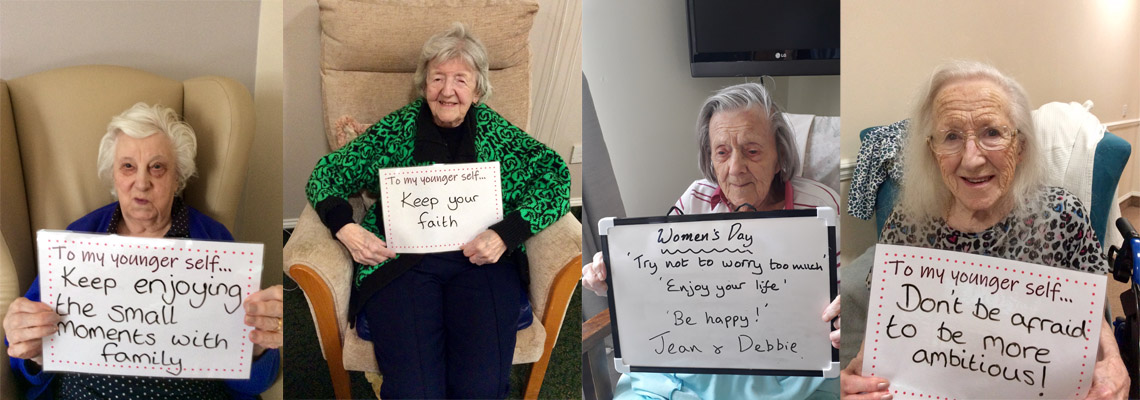 To my younger self...
Keep enjoying
the small
moments with
family
To my younger self...
Keep your
faith
LG
Women's Day
'Try not to worry too much'
'Enjoy your life'
'Be happy!'
Jean & Debbie
To my younger self...
Don't be afraid
to be more
ambitious!